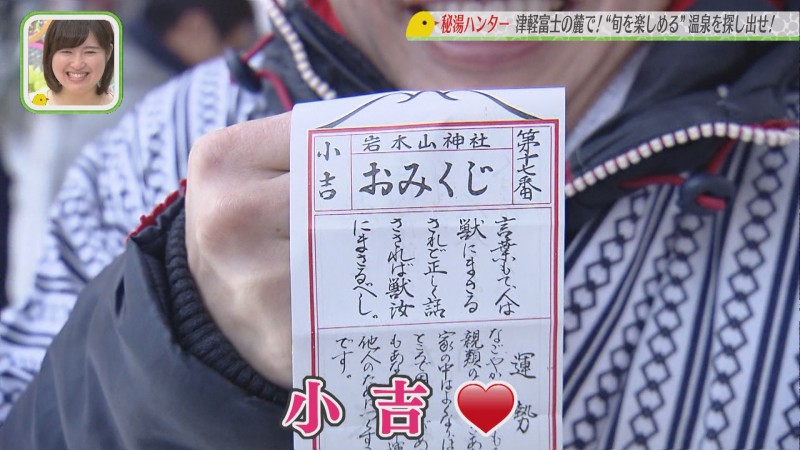 秘湯ハンター 津軽富士の麓で!“旬を楽しめる”温泉を探し出せ!
第十七番
岩木山神社
おみくじ
小吉
言葉もて人は
獣にまさる
されど正しく話
さされば獣汝
にまさるべし。
運勢
なごやか
親類の
家の中は
もある
他人の
です。
小吉